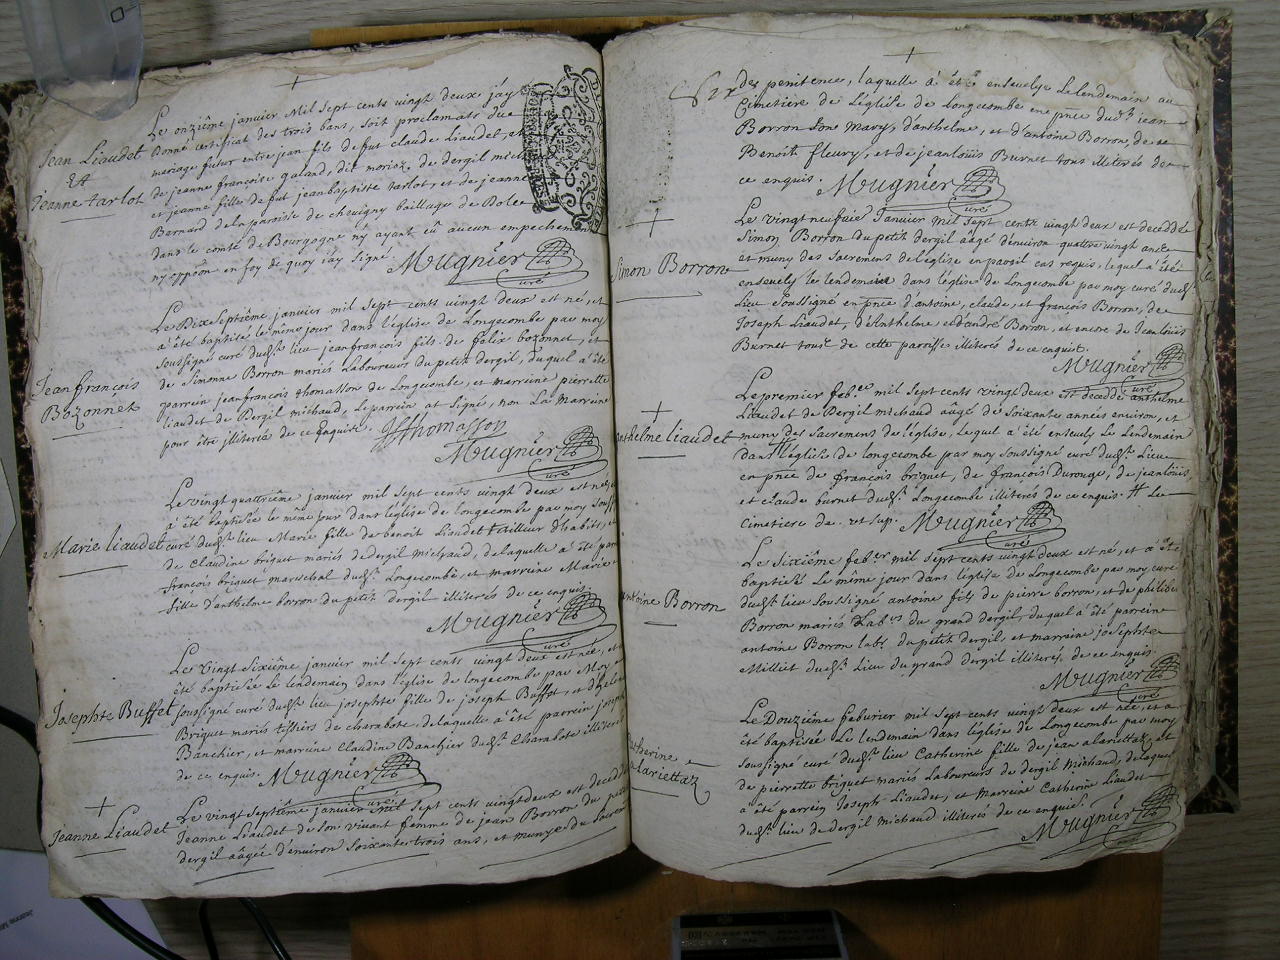 Le onziême janvier Mil sept cents vingt deux jáy
Jean Liaudet
Et
Jeanne tarlot
Donné certificat des trois bans, soit proclamats due
mariage futur entre jean fils de fut claude Liaudet, et
de jeanne françoise galand, dit moriaz, de dergil mich
et jeanne fille de fut jeanbaptiste tarlot, et de jeanne
Bernard de la paroisse de chevigny bailliage de Dole
dans le comté de Bourgogne n'y ayant eû aucun empechem
ny oppôon en foy de quoy j'ay signé. Mugnier
curé
Jeanfrançois
Bozonnet
Le Dix septiême janvier mil sept cents vingt deux est né, et
a été baptisé le même jour dans l'église de Longecombe par moy
soussigné curé dudt lieu jeanfrancois fils de felix bozonnet, et
de Simonne Borron mariés Laboureurs du petit dergil, duquel a été
parrein jeanfrancois thomasson de Longecombe, et marreine pierrette
liaudet de Dergil michaud, Le parrein at signé, non La Marreine
pour être illiterée de ce Enquise. JfThomasson
Mugnier
curé
Marie liaudet
Le vingt quattriême janvier mil sept cents vingt deux est née
a été baptisée le même jour dans l'église de longecombe par moy souss
curé dudt lieu Marie fille de benoit Liaudet tailleur d'habits, et
de Claudine briguet mariés de dergil michaud, de laquelle a été par
françois briguet mareschal dudt Longecombe, et marreine Marie
fille d'anthelme borron du petit dergil illiterés de ce enquis
Mugnier
curé
Josephte Buffet
Le Vingt Sixiême janvier mil sept cents vingt deux est née, et
été baptisée Le lendemain dans l'église de longecombe par Moy
soussigné curé dudt lieu josephte fille de joseph Buffet, et d
Briguet mariés tessiers de charabote, de laquelle a été parrein joseph
Banchier, et marreine Claudine Banchier dudt Charabote illiterés
de ce enquis. Mugnier
curé
Jeanne Liaudet
Le vingt septiême janvier mil sept cents vingtdeux est decedée
Jeanne Liaudet de son vivant femme de jean Borron du petit
dergil aâgée d'environ soixante trois ans, et munye du sacrem
Six
des penitence, laquelle á été ensevelye Le lendemain au
Cimetiére de l'église de longecombe en pnce dudt jean
Borron son Mary, d'anthelme, et d'antoine Borron, de
Benoit fleury, et de jeanloüis Burnet tous illiterés de
ce enquis. Mugnier
curé
Simon Borron
Le vingtneufvie Janvier mil sept cents vingt deux est decedé
Simon Borron du petit dergil aâgé d'environ quattre vingt ans
et muny des sacrement de l'église en pareil cas requis, lequel a été
ensevely le lendemain dans l'église de Longecombe par moy curé dudt
Lieu Soussigné en pnce d'antoine, claude, et françois Borron, de
Joseph Liaudet, d'Anthelme et d'andré Borron, et encore de Jeanloüis
Burnet tous de cette paroisse illiterés de ce enquis.
Mugnier
curé
anthelme liaudet
Le premier feber mil sept cents vingt deux est decedé anthelme
Liaudet de Dergil michaud aâgé de Soixante années environ, et
muny des Sacrement de l'église, Lequel a été ensevely Le Lendemain
dans l'église de longecombe par moy soussigné curé dudt Lieu
en pnce de françois briguet, de françois Durouge, de jeanloüis
et claude burnet dudt Longecombe illiterés de ce enquis. # Le
cimetiere de. ut sup. Mugnier
curé
antoine Borron
Le Sixiême feber mil sept cents vingt deux est né, et a été
baptisé Le même jour dans l'église de Longecombe par moy curé
dudt lieu soussigné antoine fils de pierre borron, et de philiber
Borron mariés Labrs du grand dergil, duquel a été parrein
antoine Borron labr du petit dergil, et marreine josephte
Milliet dudt Lieu du grand dergil illiterés, de ce enquis
Mugnier
curé
Catherine
alariettaz
Le Douziême feburier mil sept cents vingt deux est née, et a
été baptisée Le lendemain dans l'église de Longecombe par moy
soussigné curé dudt lieu Catherine fille de jean alariettaz, et
de pierrette briguet mariés Laboureurs de dergil Michaud, de laquel
a été parrein Joseph Liaudet, et Marreine Catherine Liaudet
dudt lieu de dergil Michaud illiterés de ce enquis.
Mugnier
curé